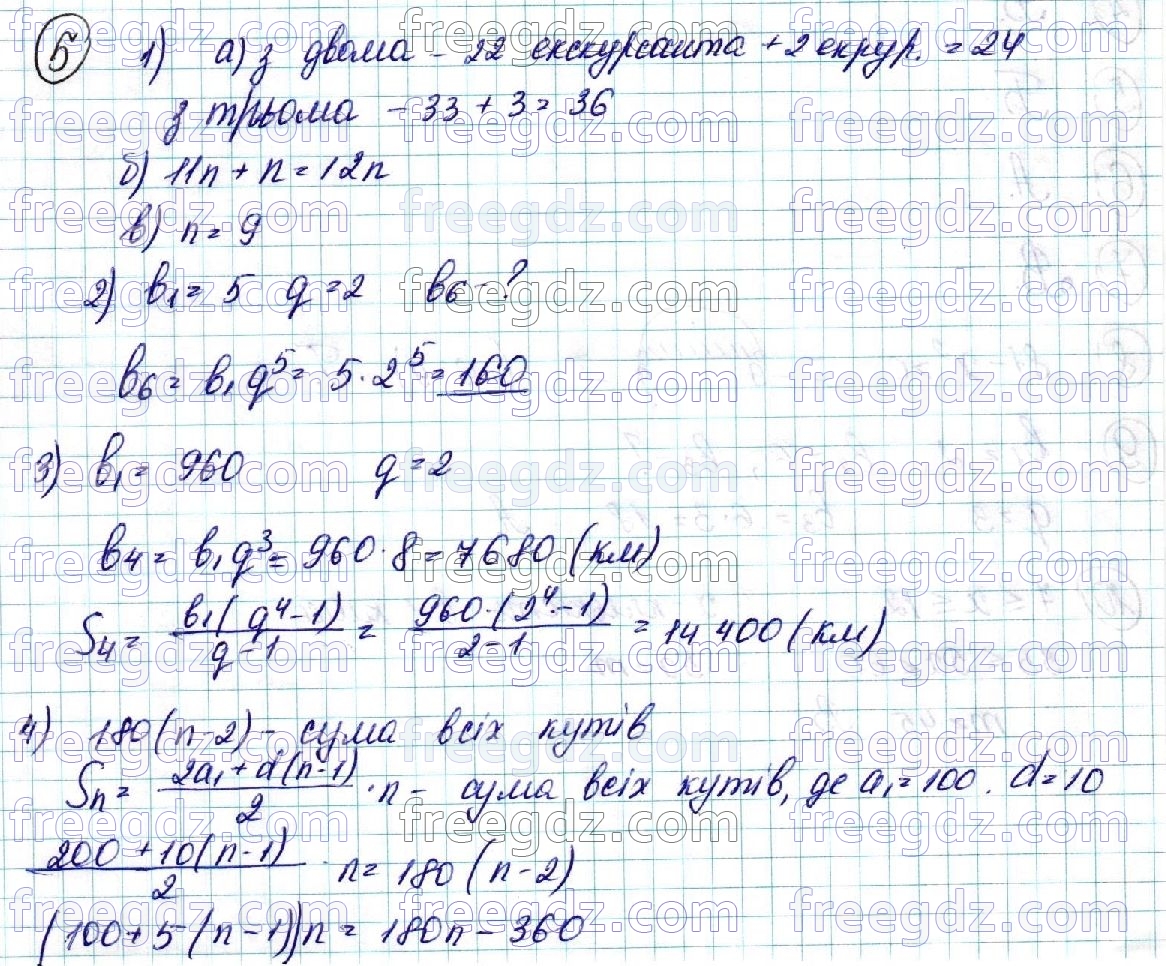 5
1) а) з двома - 22 екскурсанта + 2 екскур. = 24
з трьома - 33 + 3 = 36
б) 11n + n = 12n
в) n = 9
2) b₁ = 5 q = 2 b₆ - ?
b₆ = b₁q⁵ = 5·2⁵ = 160
3) b₁ = 960 q = 2
b₄ = b₁q³ = 960·8 = 7680 (км)
S₄ = b₁(q⁴-1)/q-1 = 960·(2⁴-1)/2-1 = 14 400 (км)
4) 180(n-2) - сума всіх кутів
Sn = 2a₁+d(n-1)/2 ·n - сума всіх кутів, де a₁=100. d=10
200+10(n-1)/2 · n = 180(n-2)
(100+5(n-1))n = 180n - 360
freegdz.com